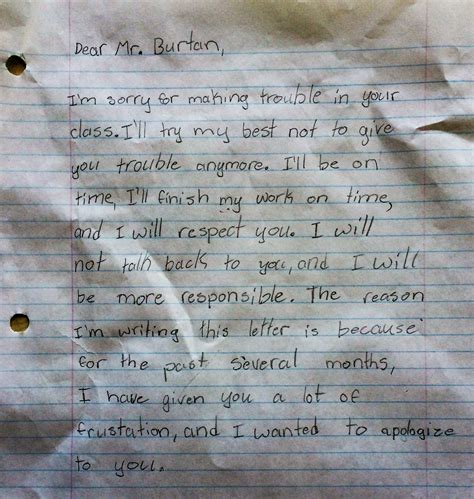 Dear Mr. Burtan,
I'm sorry for making trouble in your
class. I'll try my best not to give
you trouble anymore. I'll be on
time, I'll finish my work on time,
and I will respect you. I will
not talk back to you, and I will
be more responsible. The reason
I'm writing this letter is because
for the past several months,
I have given you a lot of
frustation, and I wanted to apologize
to you.